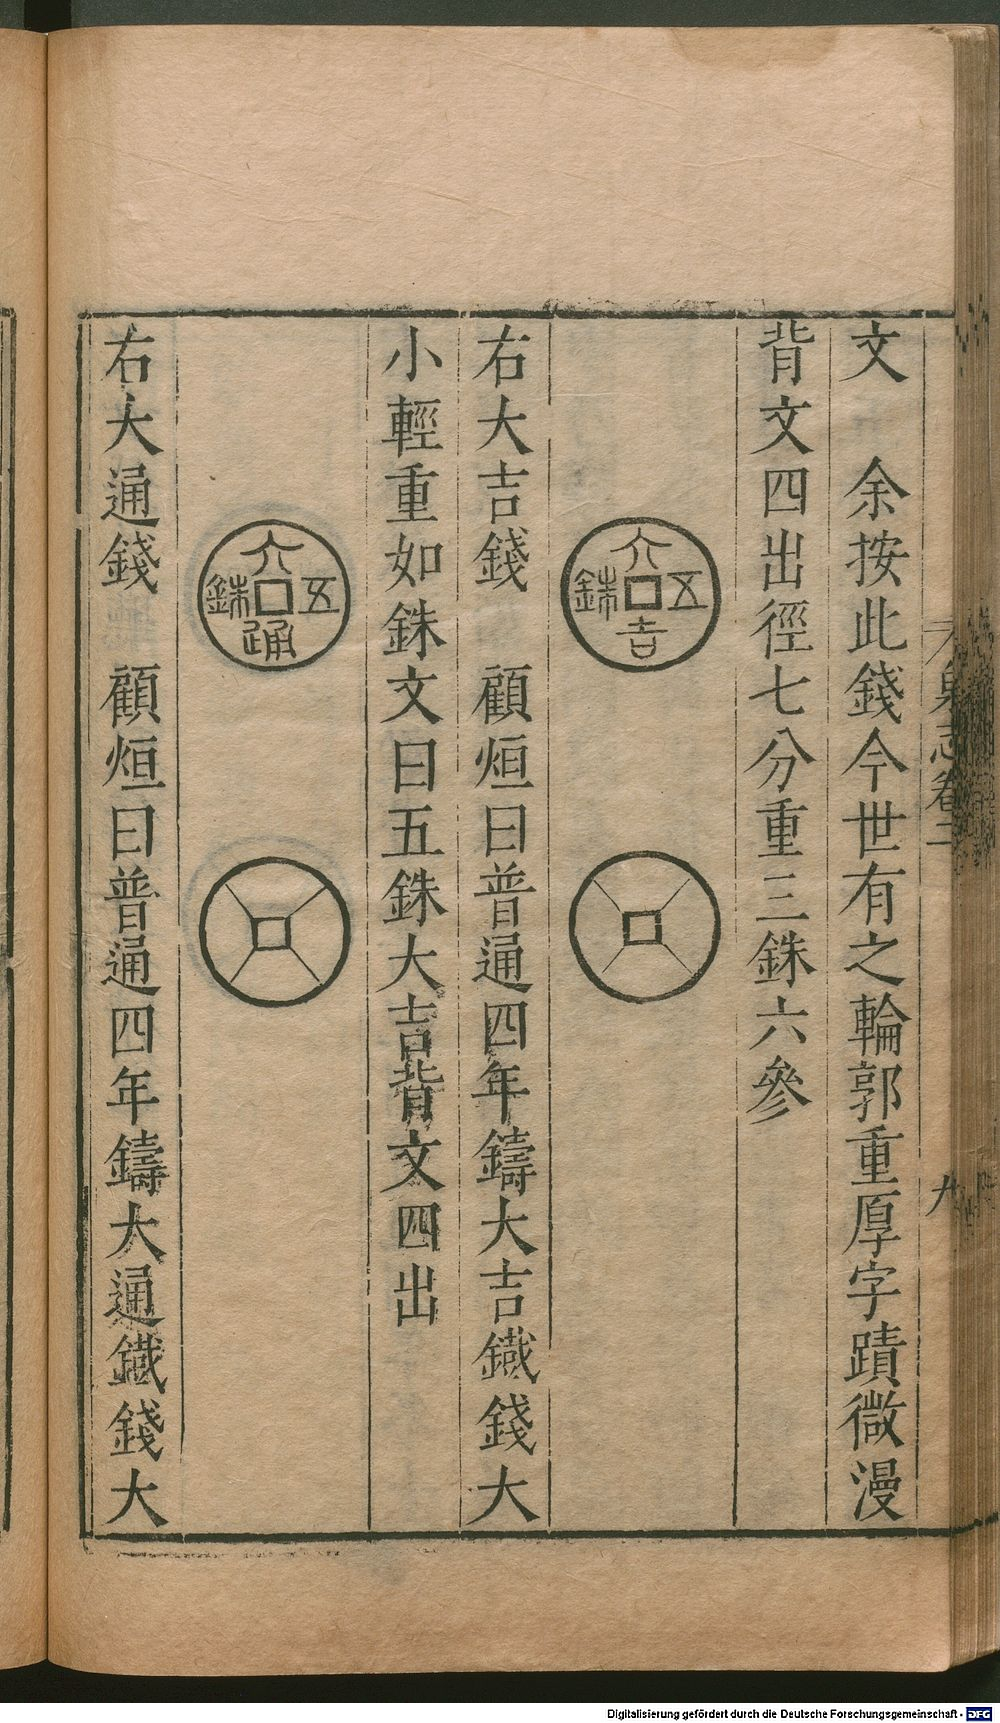 泉志卷二
九
文　余按此錢今世有之輪郭重厚字蹟微漫
背文四出徑七分重三銖六參
大吉五銖
右大吉錢　顧烜曰普通四年鑄大吉鐵錢大
小輕重如銖文曰五銖大吉背文四出
大通五銖
右大通錢　顧烜曰普通四年鑄大通鐵錢大
Digitalisierung gefördert durch die Deutsche Forschungsgemeinschaft - DFG